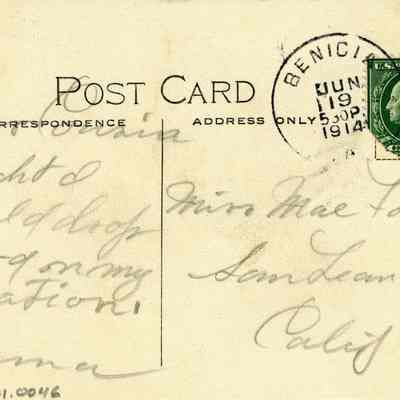 POST CARD
RRESPONDENCE
ADDRESS ONLY
BENICIA
JUN
19
530P
1914
U.S.
ht I
drop
d on my
ation.
ma
Miss Mae
San Lean
Calif
1.0046